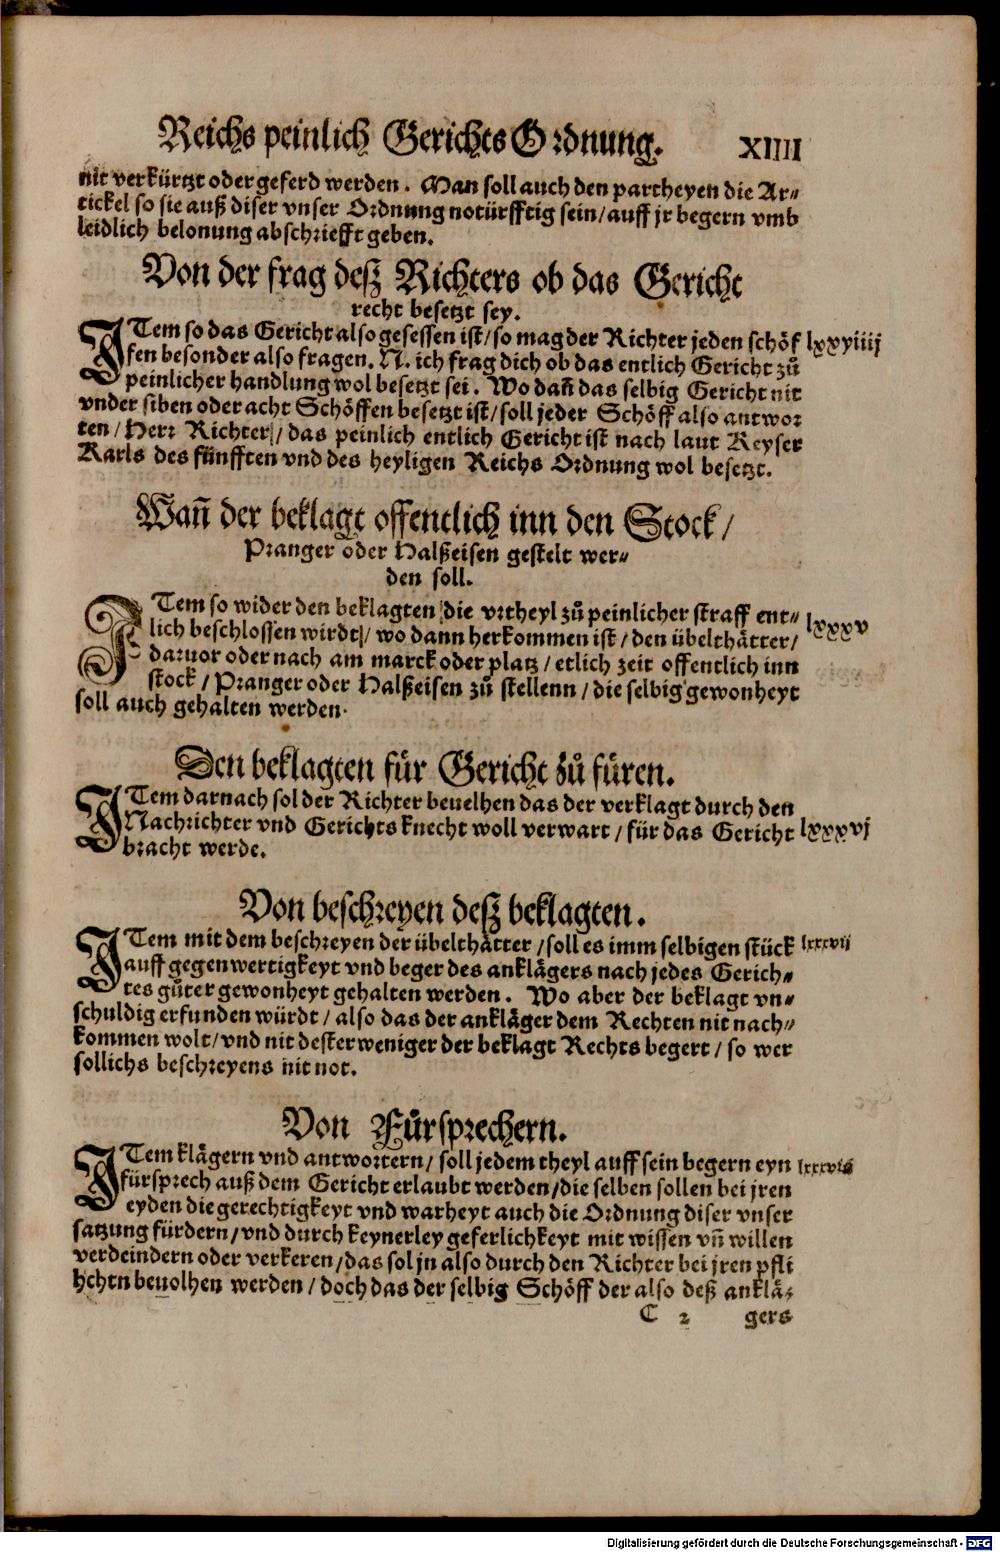 Reichs peinlich Gerichts Ordnung. XIIII
nit verkürtzt oder geferd werden. Man soll auch den partheyen die Ar⸗
tickel so sie auß diser vnser Ordnung notürfftig sein/ auff jr begern vmb
leidlich belonung abschriefft geben.
Von der frag desz Richters ob das Gericht
recht besetzt sey.
ITem so das Gericht also gesessen ist/ so mag der Richter jeden schöf lxxxiiij
fen besonder also fragen. N. ich frag dich ob das entlich Gericht zů
peinlicher handlung wol besetzt sei. Wo dañ das selbig Gericht nit
vnder siben oder acht Schöffen besetzt ist/ soll jeder Schöff also antwor
ten/ Herr Richter/ das peinlich entlich Gericht ist nach laut Keyser
Karls des fünfften vnd des heyligen Reichs Ordnung wol besetzt.
Wañ der beklagt offentlich inn den Stock/
Pranger oder Halßeisen gestelt wer⸗
den soll.
ITem so wider den beklagten die vrtheyl zů peinlicher straff ent⸗ lxxxv
lich beschlossen wirdt/ wo dann herkommen ist/ den übelthätter/
daruor oder nach am marck oder platz/ etlich zeit offentlich inn
stock/ Pranger oder Halßeisen zů stellenn/ die selbig gewonheyt
soll auch gehalten werden.
Den beklagten für Gericht zů füren.
ITem darnach sol der Richter beuelhen das der verklagt durch den
Nachrichter vnd Gerichts knecht woll verwart/ für das Gericht lxxxvj
bracht werde.
Von beschreyen desz beklagten.
ITem mit dem beschreyen der übelthätter/ soll es imm selbigen stück lxxxvij
auff gegenwertigkeyt vnd beger des anklägers nach jedes Gerich⸗
tes gůter gewonheyt gehalten werden. Wo aber der beklagt vn⸗
schuldig erfunden würdt/ also das der ankläger dem Rechten nit nach⸗
kommen wolt/ vnd nit dester weniger der beklagt Rechts begert/ so wer
sollichs beschreyens nit not.
Von Fürsprechern.
ITem klägern vnd antwortern/ soll jedem theyl auff sein begern eyn
fürsprech auß dem Gericht erlaubt werden/ die selben sollen bei jren
eyden die gerechtigkeyt vnd warheyt auch die Ordnung diser vnser
satzung fürdern/ vnd durch keynerley geferlichkeyt mit wissen vñ willen
verdeindern oder verkeren/ das sol jn also durch den Richter bei jren pfli
hchtn beuolhen werden/ doch das der selbig Schöff der also deß anklä⸗
C 2 gers
Digitalisierung gefördert durch die Deutsche Forschungsgemeinschaft - DFG